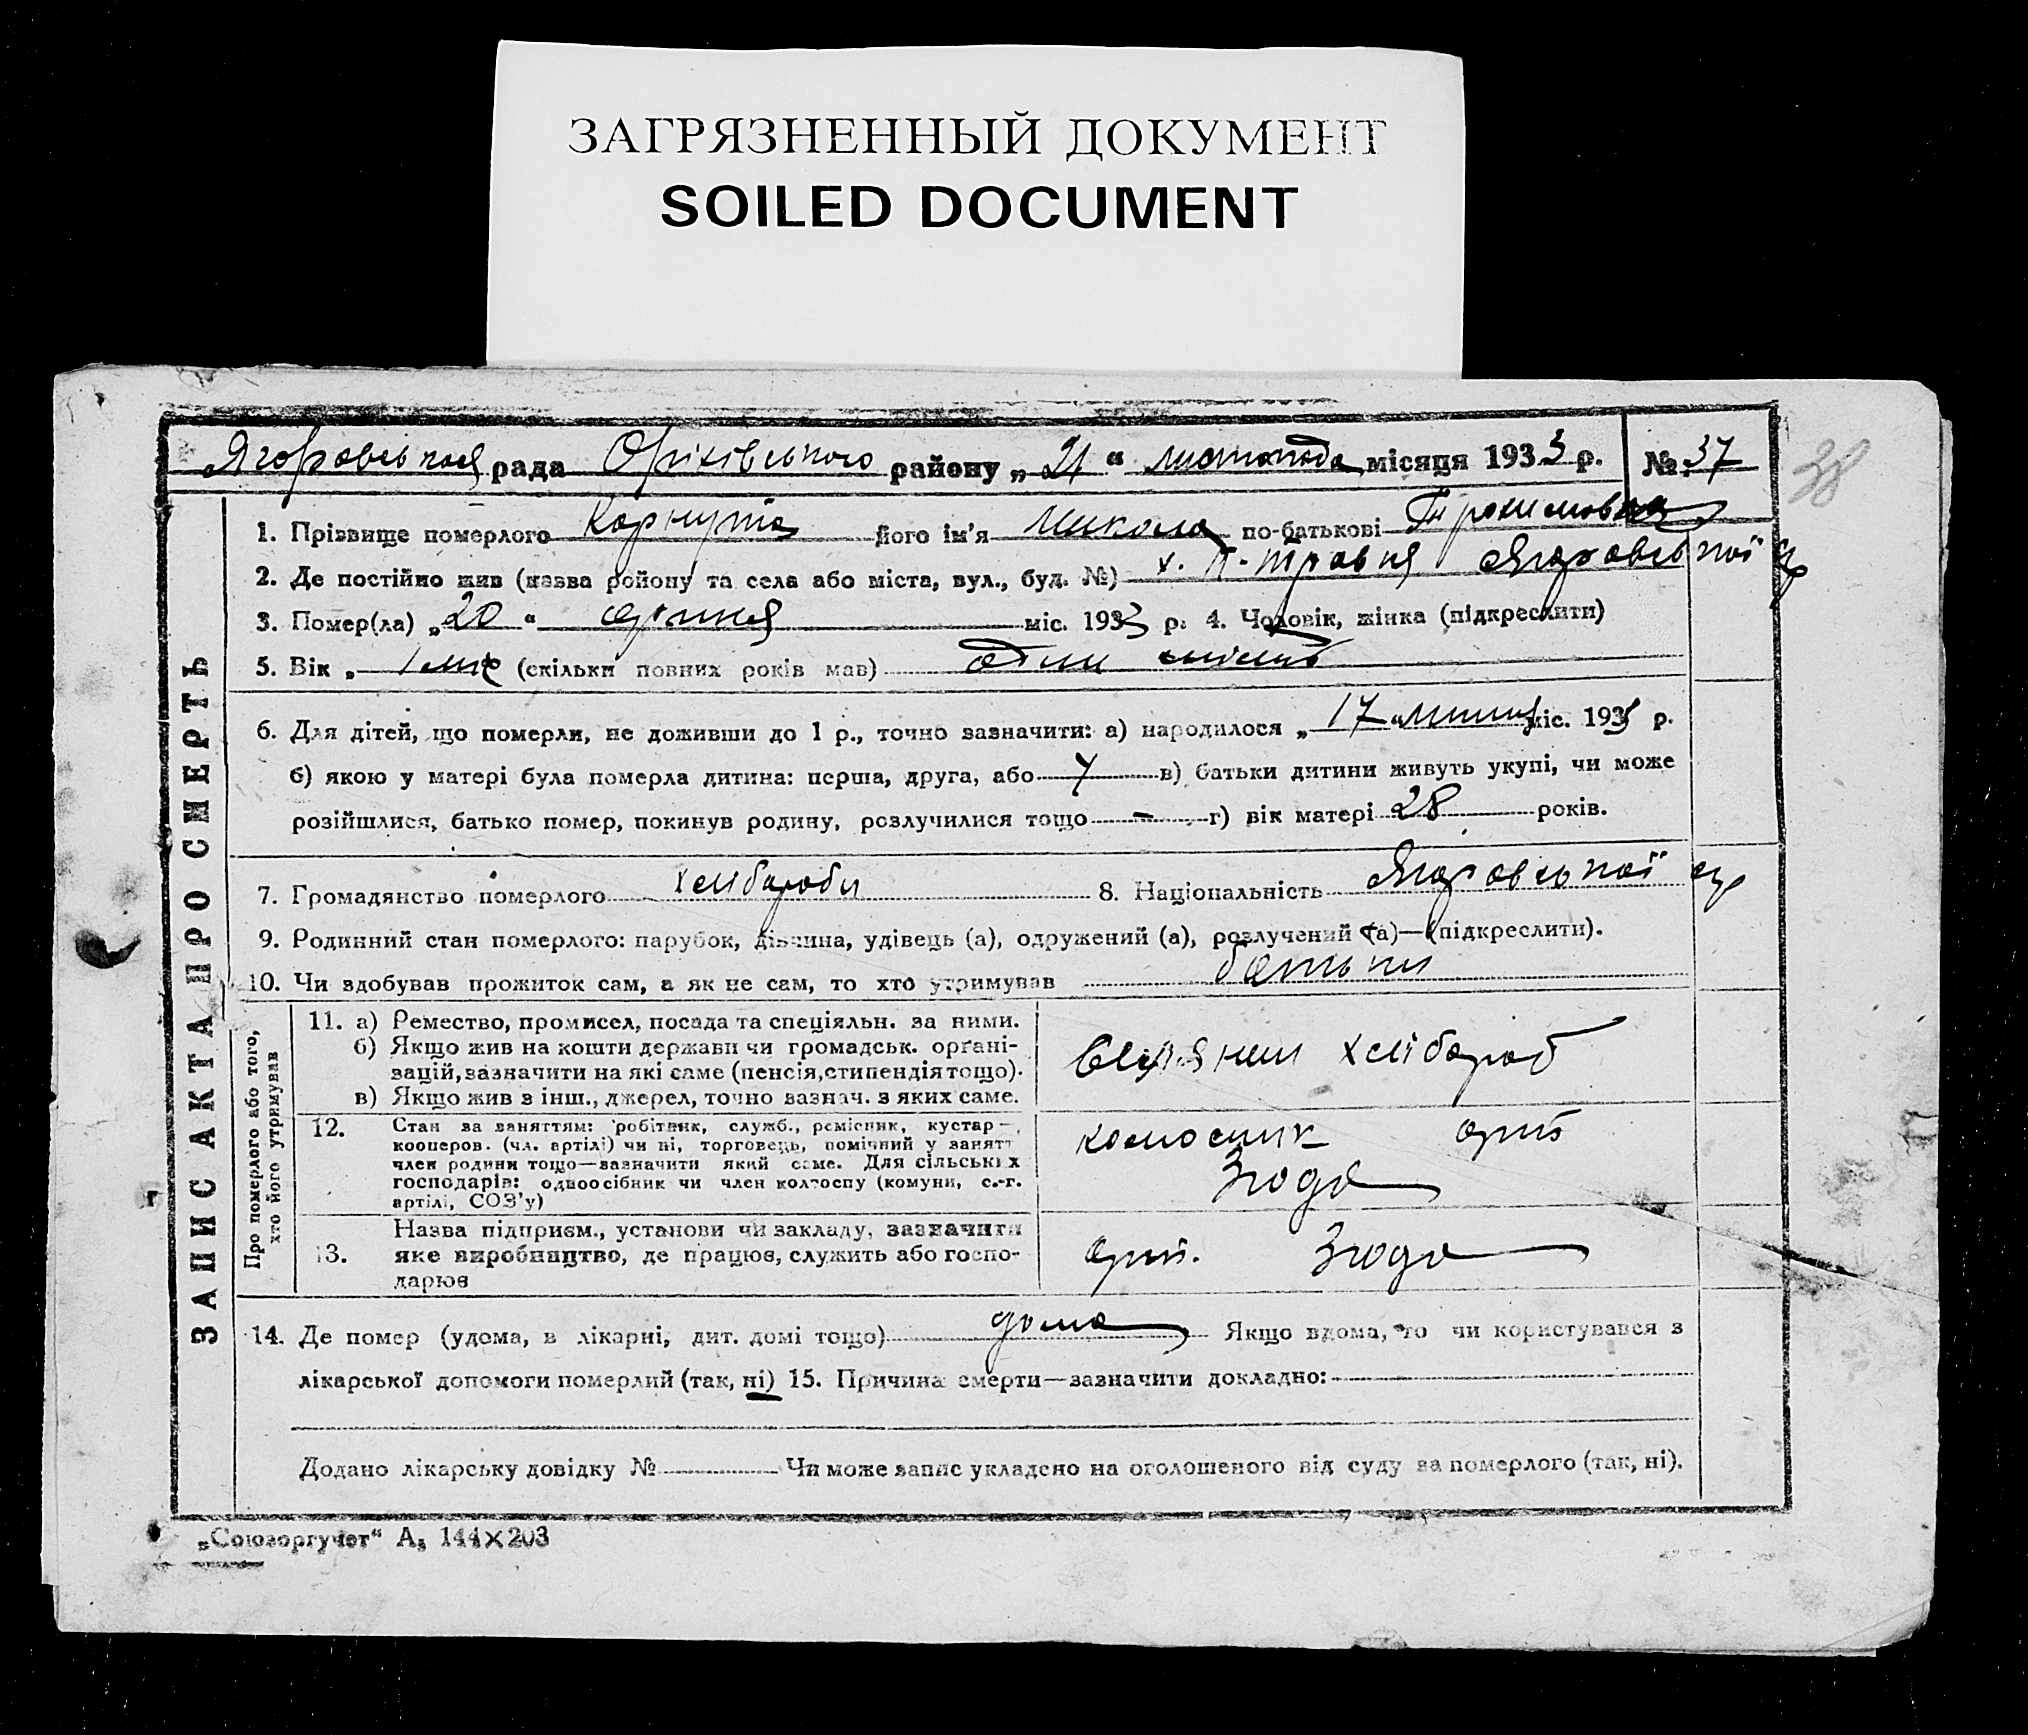 ЗАГРЯЗНЕННЫЙ ДОКУМЕНТ
SOILED DOCUMENT
рада Оріхівського району „ 21 “ листопада місяця 1933 р. № 37
38
1. Прізвище померлого Корнута його ім'я Микола по-батькові
2. Де постійно жив (назва району та села або міста, вул., буд. №) х. травня
3. Помер(ла) „ 20 “ міс. 1933 р. 4. Чоловік, жінка (підкреслити)
5. Вік „ 1 міс (скільки повних років мав) один місяць
6. Для дітей, що померли, не доживши до 1 р., точно зазначити: а) народилося „ 17 “ міс. 193 р.
б) якою у матері була померла дитина: перша, друга, або в) батьки дитини живуть укупі, чи може
розійшлися, батько помер, покинув родину, розлучилися тощо — г) вік матері 28 років.
7. Громадянство померлого хлібороби 8. Національність
9. Родинний стан померлого: парубок, дівчина, удівець (а), одружений (а), розлучений (а)—(підкреслити).
10. Чи здобував прожиток сам, а як не сам, то хто утримував батьки
ЗАПИС АКТА ПРО СМЕРТЬ
Про померлого або того, хто його утримував
11. а) Ремество, промисел, посада та спеціяльн. за ними.
б) Якщо жив на кошти держави чи громадськ. орґані-
зацій, зазначити на які саме (пенсія, стипендія тощо).
в) Якщо жив з інш., джерел, точно зазнач. з яких саме.
хлібороб
12. Стан за заняттям: робітник, служб., ремісник, кустар—,
кооперов. (чл. артілі) чи ні, торговець, помічний у занятт
член родини тощо—зазначити який саме. Для сільських
господарів: одноосібник чи член колгоспу (комуни, с.-г.
артілі, СОЗ'у)
колгоспник арт
Згода
13. Назва підприєм., установи чи закладу, зазначити
яке виробництво, де працює, служить або госпо-
дарює
арт. Згода
14. Де помер (удома, в лікарні, дит. домі тощо) дома Якщо вдома, то чи користувався з
лікарської допомоги померлий (так, ні) 15. Причина смерти—зазначити докладно:
Додано лікарську довідку № Чи може запис укладено на оголошеного від суду за померлого (так, ні).
„Союзоргучет“ А₅ 144×203